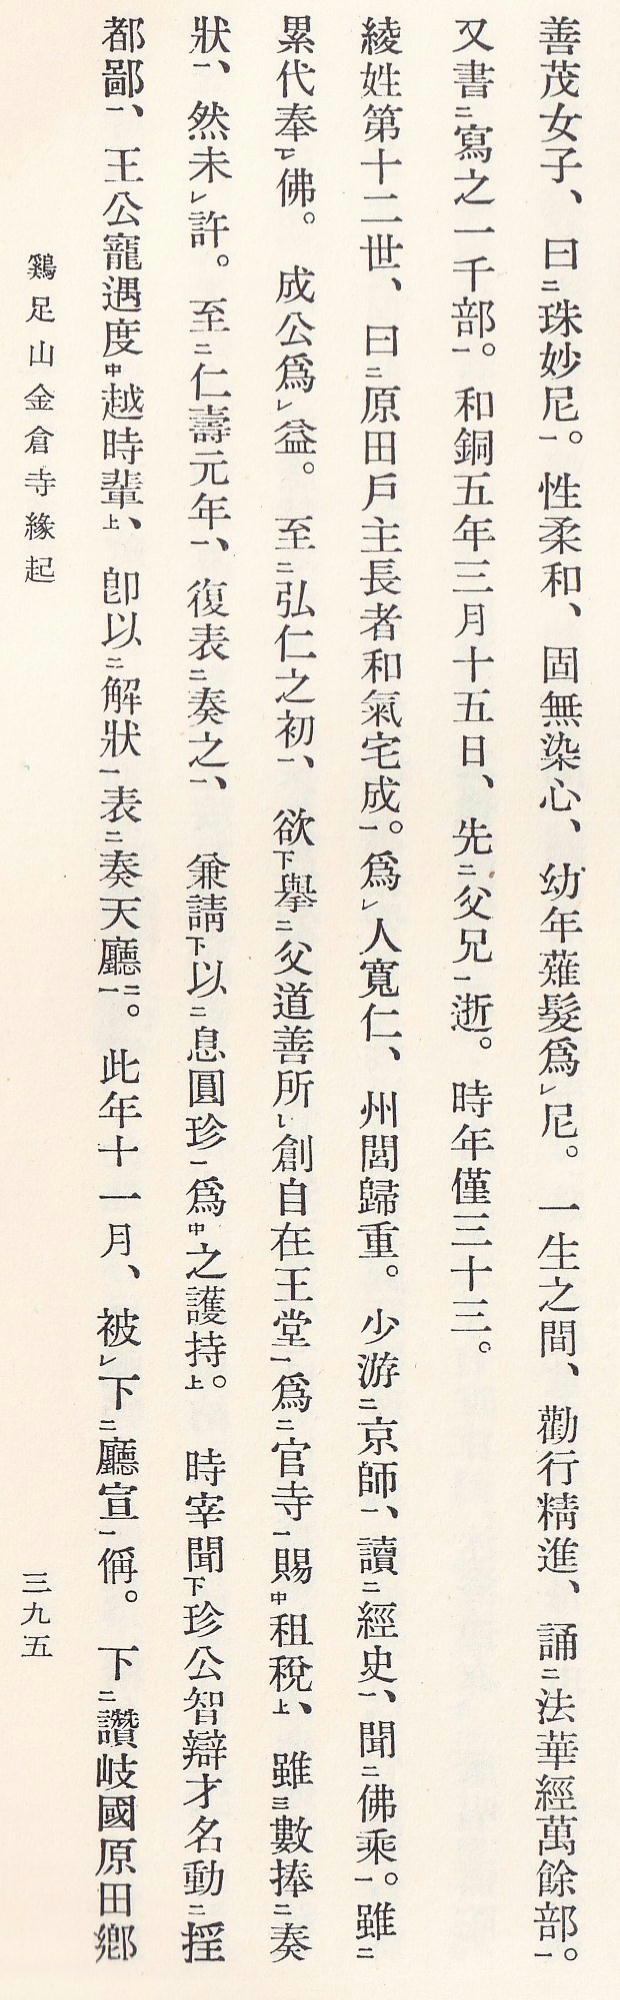 善茂女子、曰㆓珠妙尼㆒。性柔和、固無染心、幼年薙髮爲㆑尼。一生之間、勸行精進、誦㆓法華經萬餘部㆒。
又書㆓寫之一千部㆒。和銅五年三月十五日、先㆓父兄㆒逝。時年僅三十三。
綾姓第十二世、曰㆓原田戶主長者和氣宅成㆒。爲㆑人寬仁、州閭歸重。少游㆓京師㆒、讀㆓經史㆒、聞㆓佛乘㆒。雖㆘
累代奉㆑佛。成公爲㆑益。至㆓弘仁之初㆒、欲㆘擧㆓父道善所㆑創自在王堂㆒爲㆓官寺㆒賜㆗租稅㆖、雖㆔數捧㆓奏
狀㆒、然未㆑許。至㆓仁壽元年㆒、復表㆓奏之㆒、兼請㆘以㆓息圓珍㆒爲㆗之護持㆖。時宰聞㆘珍公智辯才名動㆓
都鄙㆒、王公寵遇度㆗越時輩㆖、卽以㆓解狀㆒表㆓奏天廳㆒。此年十一月、被㆑下㆓廳宣㆒偁。下㆓讚岐國原田鄕
鷄足山金倉寺緣起
三九五